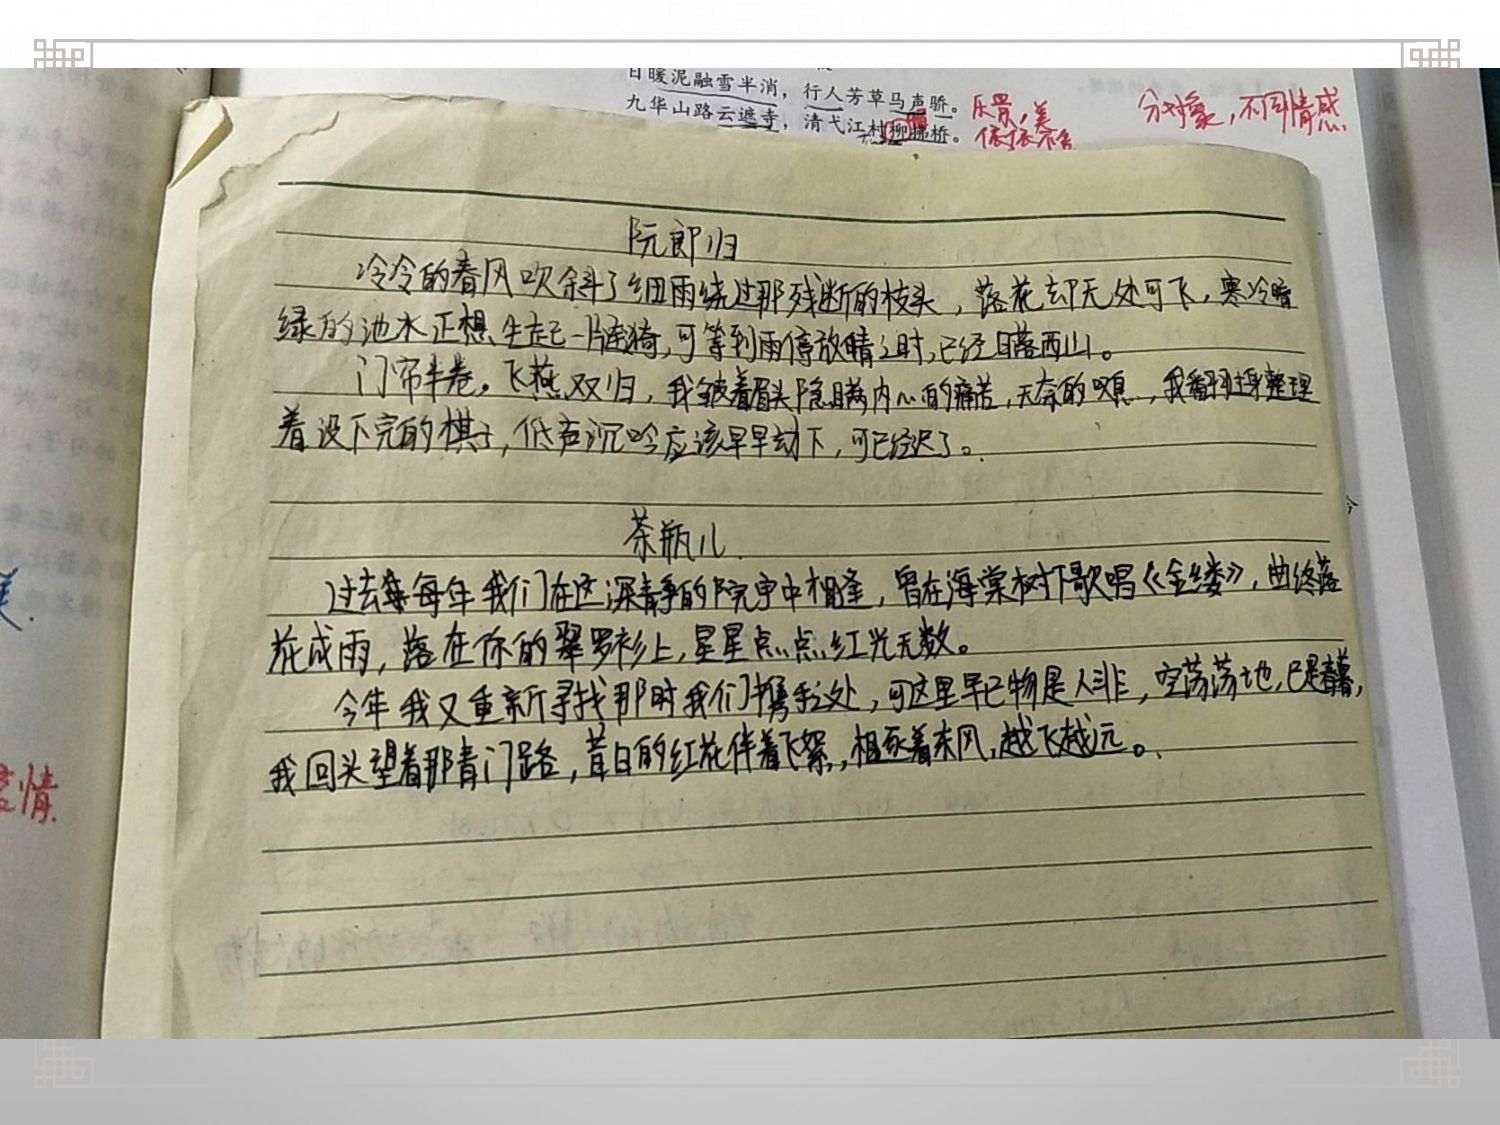 日暖泥融雪半消，行人芳草马声骄。
九华山路云遮寺，清弋江村柳拂桥。
乐景，美
依依不舍
分对象，不同情感
阮郎归
冷冷的春风吹斜了细雨绕过那残断的枝头，落花却无处可飞，寒冷暗
绿的池水正想生起一片涟漪，可等到雨停放晴之时，已经日落西山。
门帘半卷，飞燕双归，我皱着眉头隐瞒内心的痛苦，无奈的叹息，我翻身整理
着没下完的棋子，低声沉吟应该早早劫下，可已经迟了。
茶瓶儿
过去每年我们在这深静的院宇中相逢，曾在海棠树下歌唱《金缕》，曲终落
花成雨，落在你的翠罗衫上，星星点点红光无数。
今年我又重新寻找那时我们携手之处，可这里早已物是人非，空荡荡地，已是春暮，
我回头望着那青门路，昔日的红花伴着飞絮，相逐着东风，越飞越远。
美.
情.